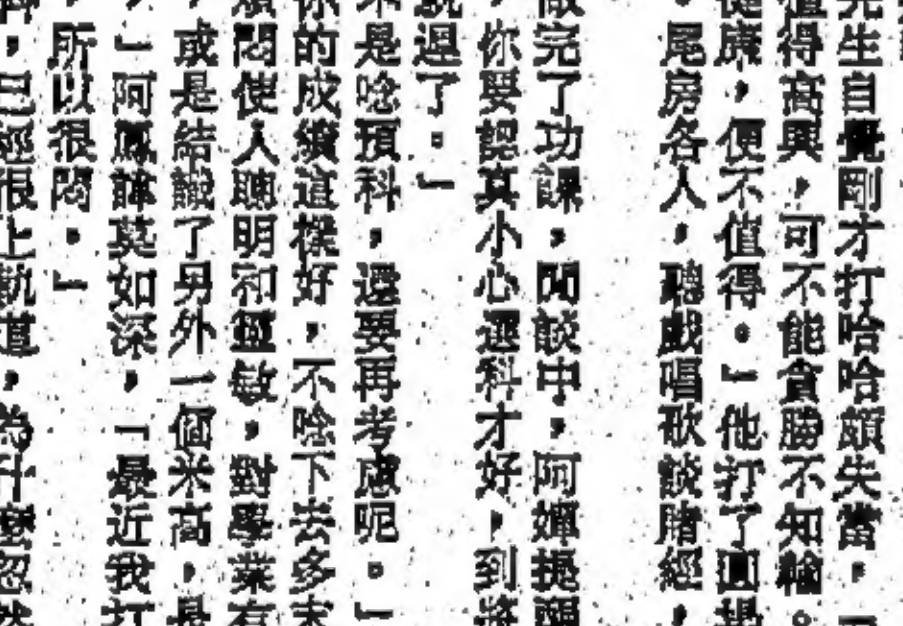 先生自覺剛才打哈哈頗失當，「
值得高興，可不能貪勝不知輸。
健康，便不值得。」他打了圓場
。尾房各人，聽戲唱歌談賭經，
做完了功課，閒談中，阿嬋提醒
，你要認真小心選科才好，到將
說過了。」
不是唸預科，還要再考慮呢。」
你的成績這樣好，不唸下去多末
煩悶使人聰明和靈敏，對學業有
，或是結識了另外一個米高，是
，」阿鳳諱莫如深，「最近我打
所以很悶。」
，已經很上軌道，為什麼忽然